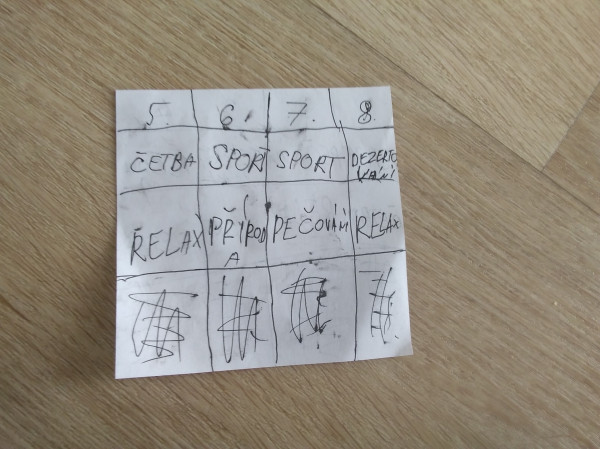 5. 6. 7. 8.
ČETBA SPORT SPORT DEZERTO
VÁNÍ
RELAX PŘÍROD PEČOVÁNÍ RELAX
A